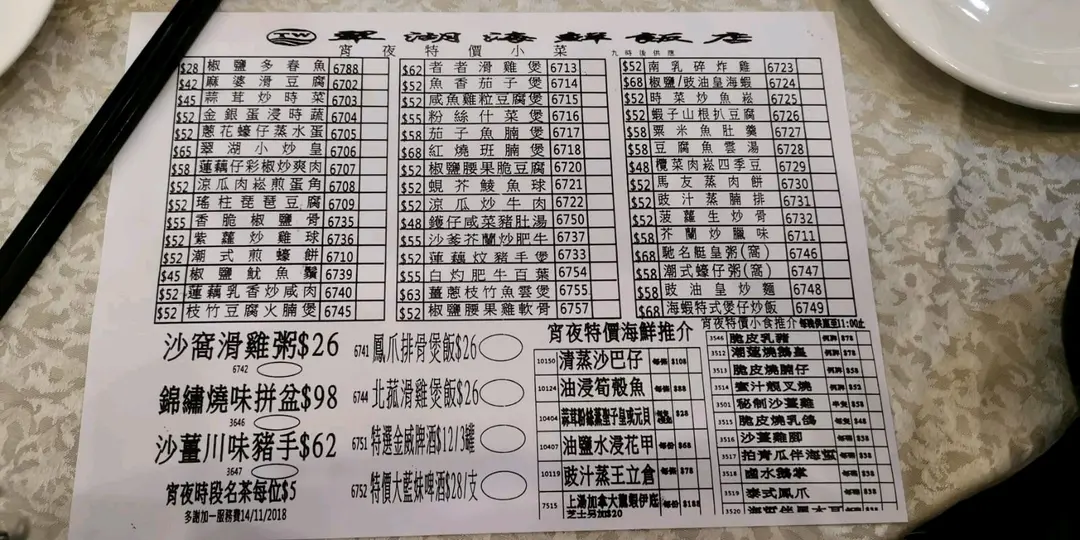 TW 翠湖海鮮飯店
宵夜特價小菜 九時後供應
$28 椒鹽多春魚 6788
$42 麻婆滑豆腐 6702
$45 蒜茸炒時菜 6703
$52 金銀蛋浸時蔬 6704
$52 蔥花蠔仔蒸水蛋 6705
$65 翠湖小炒皇 6706
$58 蓮藕仔彩椒炒爽肉 6707
$52 涼瓜肉崧煎蛋角 6708
$52 瑤柱琵琶豆腐 6709
$55 香脆椒鹽骨 6735
$52 紫蘿炒雞球 6736
$52 潮式煎蠔餅 6710
$45 椒鹽魷魚鬚 6739
$52 蓮藕乳香炒咸肉 6740
$52 枝竹豆腐火腩煲 6745
$62 者者滑雞煲 6713
$52 魚香茄子煲 6714
$52 咸魚雞粒豆腐煲 6715
$55 粉絲什菜煲 6716
$58 茄子魚腩煲 6717
$68 紅燒班腩煲 6718
$52 椒鹽腰果脆豆腐 6720
$52 蜆芥鯪魚球 6721
$52 涼瓜炒牛肉 6722
$48 鑊仔咸菜豬肚湯 6750
$55 沙爹芥蘭炒肥牛 6737
$52 蓮藕炆豬手煲 6733
$55 白灼肥牛百葉 6754
$63 薑蔥枝竹魚雲煲 6755
$52 椒鹽腰果雞軟骨 6757
$52 南乳碎炸雞 6723
$68 椒鹽/豉油皇海蝦 6724
$52 時菜炒魚崧 6725
$52 蝦子山根扒豆腐 6726
$58 粟米魚肚羹 6727
$58 豆腐魚雲湯 6728
$48 欖菜肉崧四季豆 6729
$52 馬友蒸肉餅 6730
$52 豉汁蒸腩排 6731
$52 菠蘿生炒骨 6732
$58 芥蘭炒臘味 6711
$68 馳名艇皇粥(窩) 6746
$58 潮式蠔仔粥(窩) 6747
$58 豉油皇炒麵 6748
$68 海蝦特式煲仔炒飯 6749
沙窩滑雞粥$26
6742
錦繡燒味拼盆$98
3646
沙薑川味豬手$62
3647
宵夜時段名茶每位$5
多謝加一服務費14/11/2018
6741 鳳爪排骨煲飯$26
6744 北菰滑雞煲飯$26
6751 特選金威啤酒$12/3罐
6752 特價大藍妹啤酒$28/支
宵夜特價海鮮推介
10150 清蒸沙巴仔 每條 $108
10124 油浸筍殼魚 每條 $88
10404 蒜茸粉絲蒸聖子皇或元貝 $28
10407 油鹽水浸花甲 每份 $68
10119 豉汁蒸王立倉 每份 $78
7515 上湯加拿大龍蝦伊底 每份 $188
芝士另加$20
宵夜特價小食推介 每晚供應至11:00止
3546 脆皮乳豬 例牌 $78
3512 潮蓮燒鵝皇 例牌 $78
3513 脆皮燒腩仔 例牌 $58
3514 蜜汁靚叉燒 例牌 $52
3501 秘制沙薑雞 半隻 $58
3515 脆皮燒乳鴿 每隻 $48
3516 沙薑雞腳 $38
3517 拍青瓜伴海蜇 $38
3518 鹵水鵝掌 $38
3519 泰式鳳爪 $38
3520